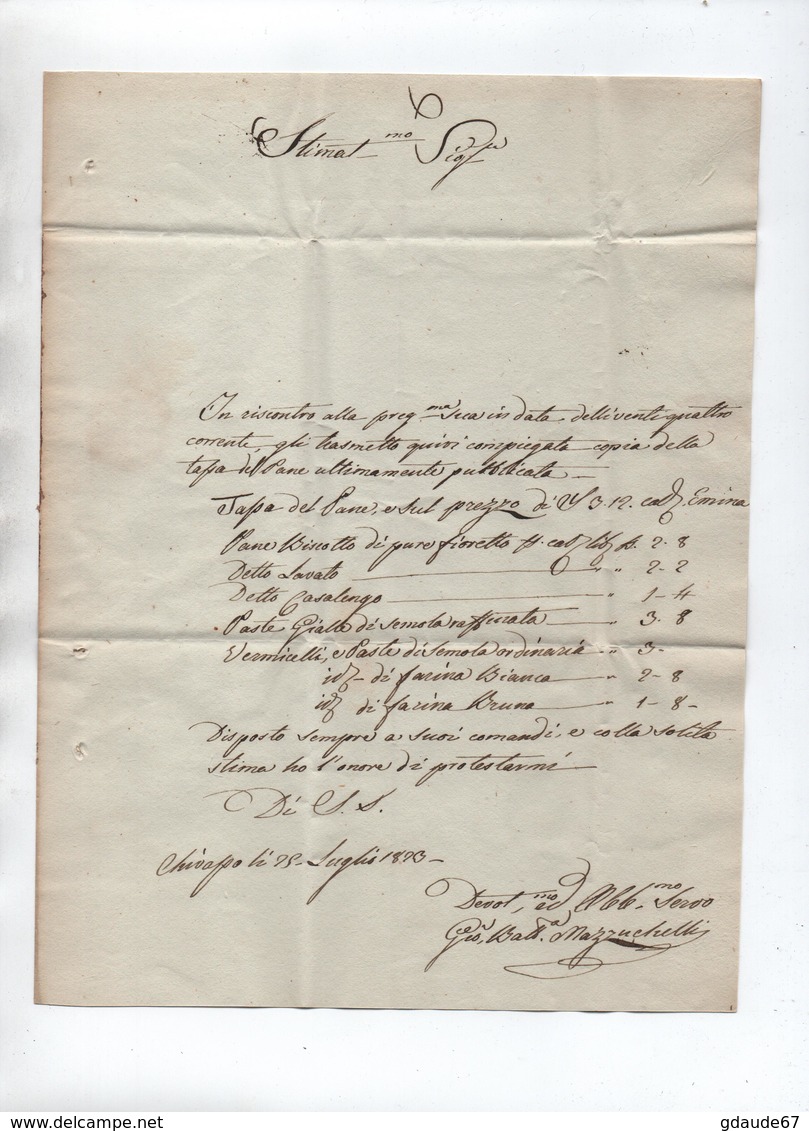 Stimat.mo Sig.re
In riscontro alla preg.ma sua in data delli venti quattro
corrente, gli trasmetto quivi compiegata copia della
tassa del Pane ultimamente pubblicata —
Tassa del Pane, e sul prezzo di 3. 12. cad. Emina
Pane Biscotto di pure fioretto p. cad. 2. 8
Detto Lavato — " " 2 - 2
Detto Casalengo — " 1 - 4
Paste Gialle di semola raffinata — " 3. 8
Vermicelli, e Paste di semola ordinaria " " 3 -
id. - di farina Bianca — " 2 - 8
id. di farina Bruna — " 1 - 8 -
Disposto sempre a suoi comandi, e colla solita
stima ho l'onore di protestarmi —
Di S. S.
Chivasso li 25 - Luglio 1823 -
Devot.mo ed Obb.mo Servo
Gio. Batt.a Mazzuchelli
www.delcampe.net
gdaude67